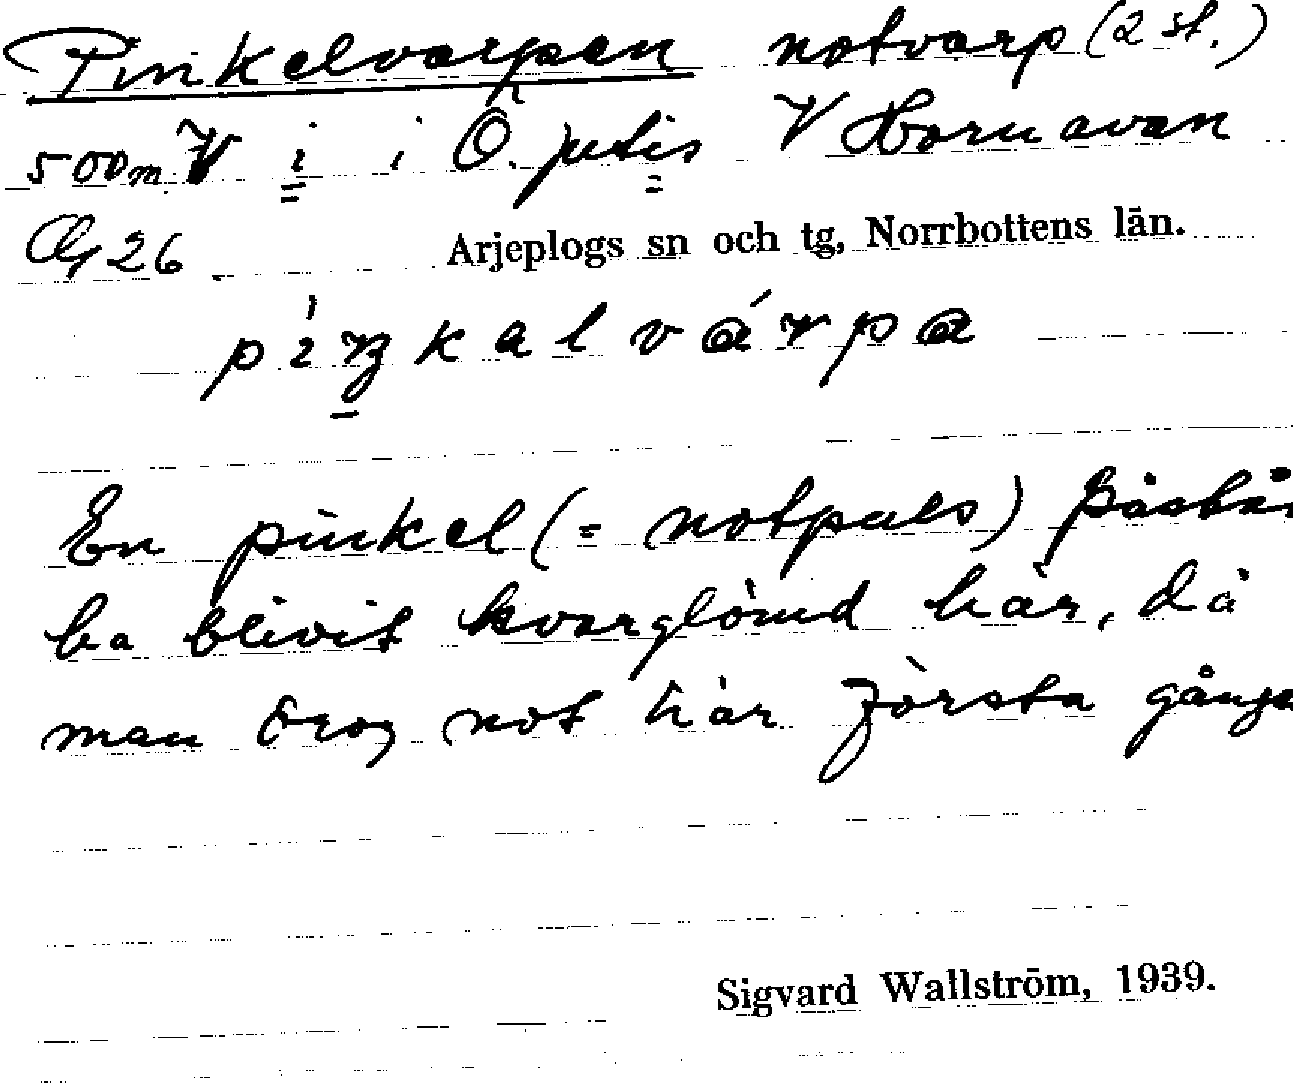 Pinkelvarpen notvarp (2 st.)
500m V i i Ö. jutis V Hornavan
26
Arjeplogs sn och tg, Norrbottens län.
En pinkel (= notpuls) påstås
ha blivit kvarglömd här, då
man drog not här första gången
Sigvard Wallström, 1939.